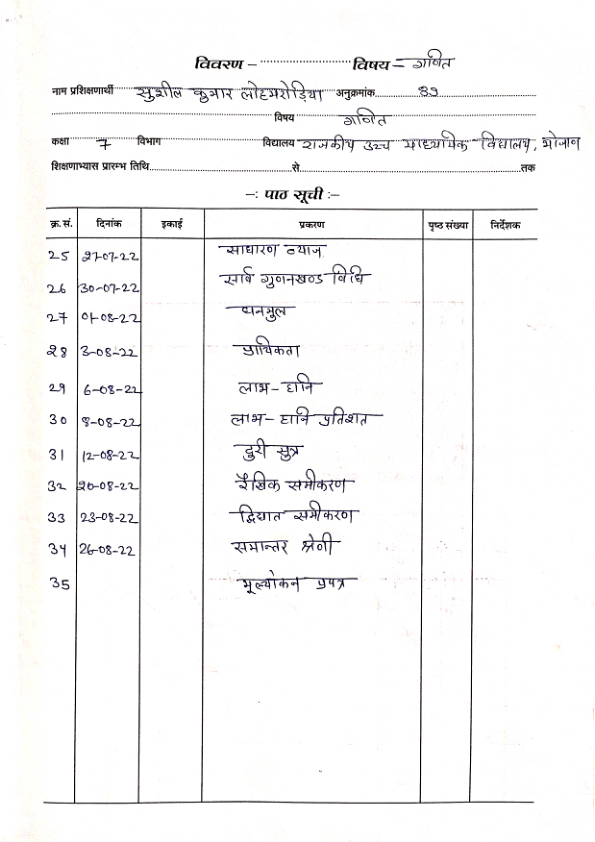 विवरण – ........................ विषय – गणित
नाम प्रशिक्षणार्थी सुशील कुमार लोहमरोड़िया अनुक्रमांक 39
विषय गणित
कक्षा 7 विभाग विद्यालय राजकीय उच्च माध्यमिक विद्यालय, भोजान
शिक्षणाभ्यास प्रारम्भ तिथि........................से........................तक
–: पाठ सूची :–
क्र.सं. दिनांक इकाई प्रकरण पृष्ठ संख्या निर्देशक
25 27-07-22 साधारण ब्याज
26 30-07-22 सार्व गुणनखण्ड विधि
27 01-08-22 घनमुल
28 3-08-22 प्रायिकता
29 6-08-22 लाभ-हानि
30 8-08-22 लाभ-हानि प्रतिशत
31 12-08-22 दुरी सुत्र
32 20-08-22 रैखिक समीकरण
33 23-08-22 द्विघात समीकरण
34 26-08-22 समान्तर श्रेणी
35 मूल्यांकन प्रपत्र